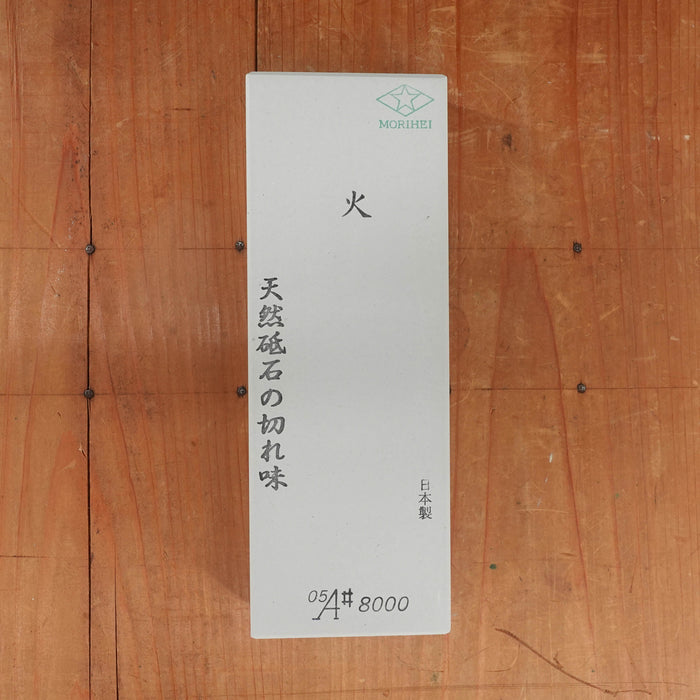 MORIHEI
火
天然砥石の切れ味
日本製
05A#8000